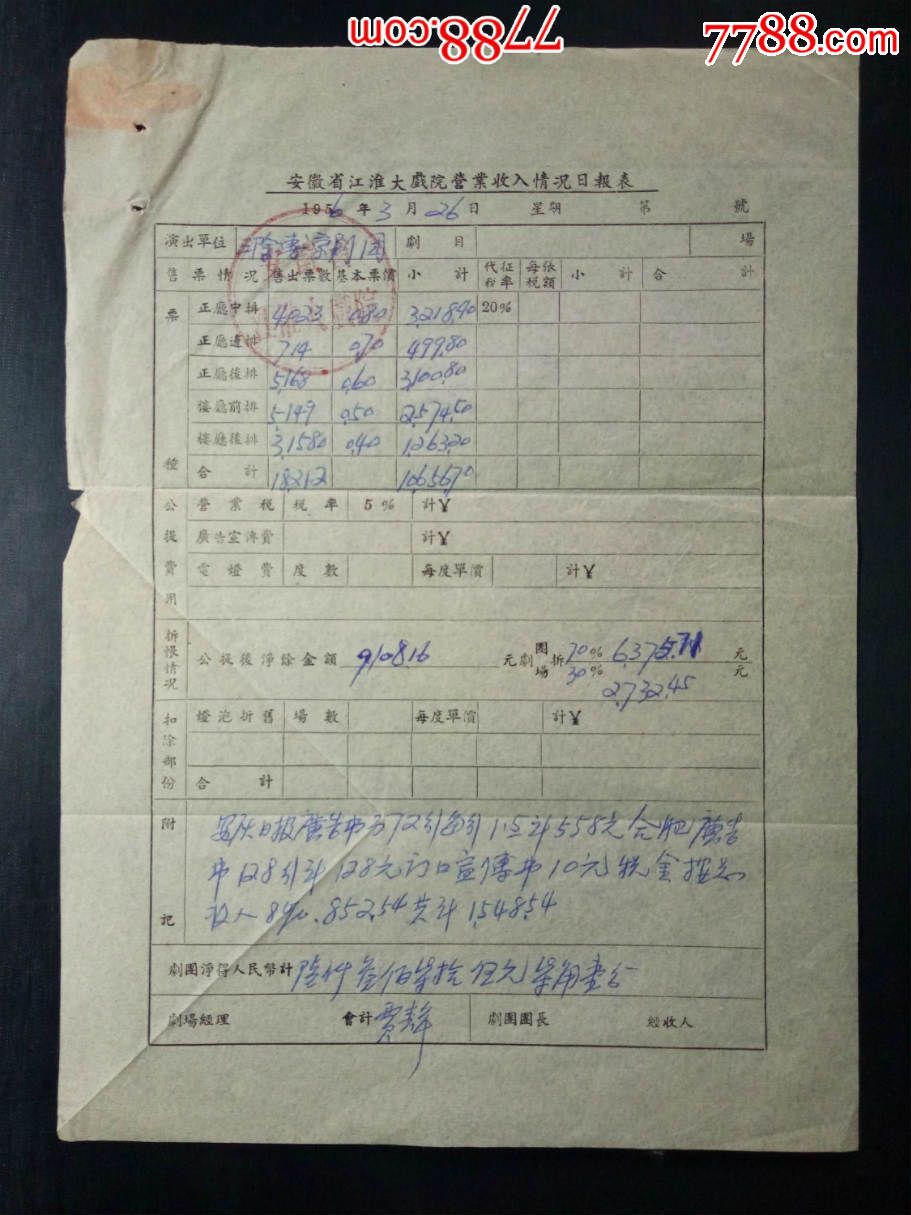 7788.com
7788.com
安徽省江淮大戲院營業收入情况日報表
1956年3月26日 星期 第 號
演出單位 京劇團 劇目 場
售票情况 售出票數 基本票價 小計 代征税率 每張税額 小計 合計
票種
正廳中排 4,023 0.80 3,218.40 20%
正廳邊排 714 0.70 499.80
正廳後排 5,168 0.60 3,100.80
樓廳前排 5,149 0.50 2,574.50
樓廳後排 3,158 0.40 1,263.20
合計 18,212 10,656.70
公提費用
營業税 税率 5% 計¥
廣告宣傳費 計¥
電燈費 度數 每度單價 計¥
拆帳情况
公提後淨餘金額 9,108.16 元 劇團場拆 70% 6,375.71 元
30% 2,732.45 元
扣除部份
燈泡折舊 場數 每度單價 計¥
合計
附記
安庆日报廣告 372 計558元合肥廣告
128 計128元门口宣傳 10元税金按总
收入8%.852.54共計1,548.54
劇團淨得人民幣計 陸仟叁佰柒拾伍元柒角壹分
劇場經理 會計 賈 劇團團長 經收人